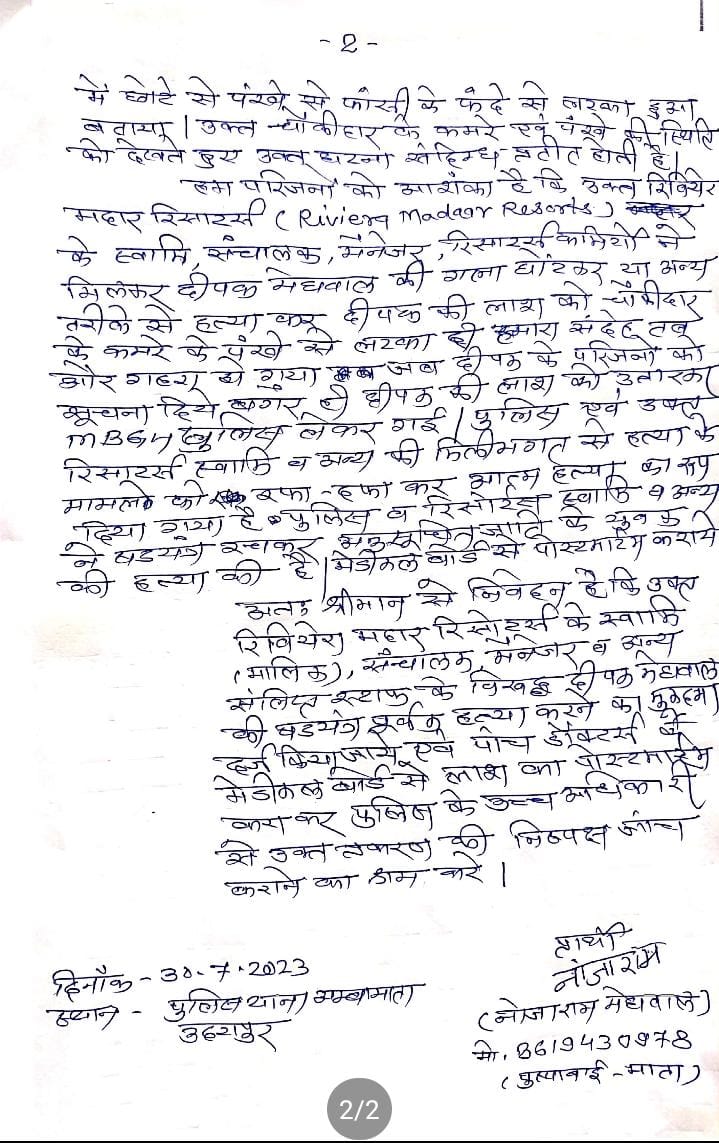 - 2 -
में छोटे से पंखे से फांसी के फंदे से लटका हुआ
बताया। उक्त चौकीदार के कमरे एवं पंखे की स्थिति
को देखते हुए उक्त घटना संदिग्ध प्रतीत होती है।
हम परिजनों को आशंका है कि उक्त रिवियेरा
मदार रिसोर्ट्स (Riviera Madaar Resorts)
के स्वामि, संचालक, मैनेजर, रिसोर्ट्स कर्मियों ने
मिलकर दीपक मेघवाल की गला घोंटकर या अन्य
तरीके से हत्या कर दीपक की लाश को चौकीदार
के कमरे के पंखे से लटका दी हमारा संदेह तब
और गहरा हो गया जब दीपक के परिजनों को
सूचना दिये बगैर ही दीपक की लाश को उतारकर
MBGH पुलिस लेकर गई। पुलिस एवं उक्त
रिसोर्ट्स स्वामि व अन्य की मिलीभगत से हत्या के
मामले को रफा-दफा कर आत्म हत्या का रूप
दिया गया है। पुलिस व रिसोर्ट्स स्वामि व अन्य
ने षडयंत्र रचकर अनुसूचित जाति के युवक
की हत्या की है। मेडीकल बोर्ड से पोस्टमार्टम कराये
अतः श्रीमान से निवेदन है कि उक्त
रिवियेरा मदार रिसोर्ट्स के स्वामि
(मालिक), संचालक, मैनेजर व अन्य
संलिप्त स्टाफ के विरुद्ध दीपक मेघवाल
की षडयंत्र पूर्वक हत्या करने का मुकदमा
दर्ज किया जाये एवं पांच डॉक्टर्स के
मेडीकल बोर्ड से लाश का पोस्टमार्टम
करा कर पुलिस के उच्च अधिकारी
से उक्त प्रकरण की निष्पक्ष जांच
कराने का श्रम करे।
दिनाँक - 30.7.2023
स्थान - पुलिस थाना अम्बामाता
उदयपुर
प्रार्थी
नोजाराम
(नोजाराम मेघवाल)
मो. 8619430978
(पुष्पाबाई - माता)
2/2